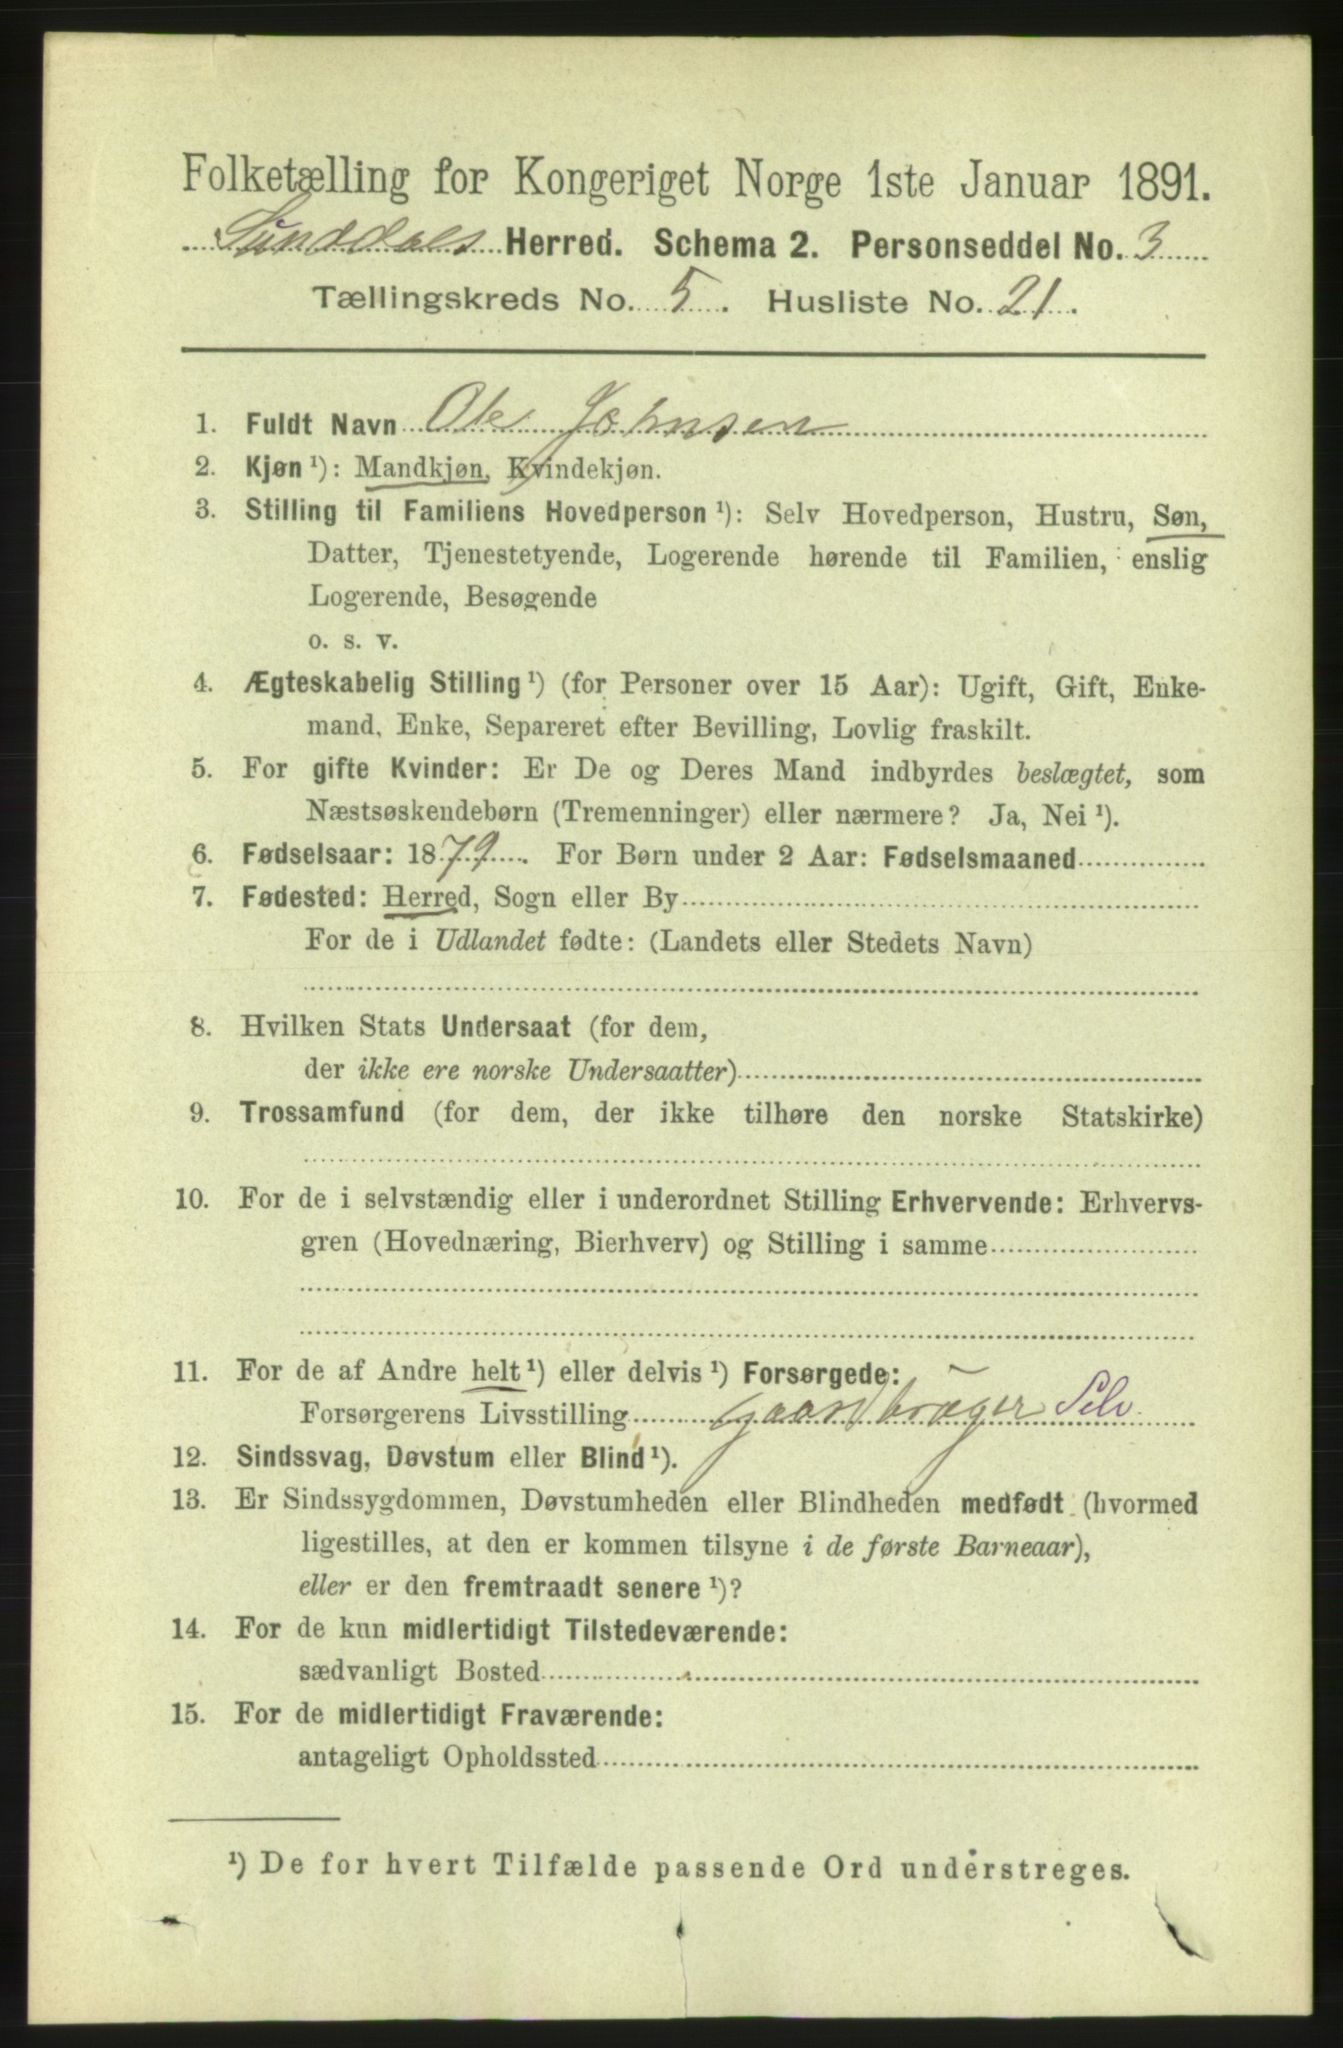 Folketælling for Kongeriget Norge 1ste Januar 1891.
Sunddals Herred. Schema 2. Personseddel No. 3
Tællingskreds No. 5. Husliste No. 21.
1. Fuldt Navn Ole Johnsen
2. Kjøn ¹): Mandkjøn, Kvindekjøn.
3. Stilling til Familiens Hovedperson ¹): Selv Hovedperson, Hustru, Søn,
Datter, Tjenestetyende, Logerende hørende til Familien, enslig
Logerende, Besøgende
o. s. v.
4. Ægteskabelig Stilling ¹) (for Personer over 15 Aar): Ugift, Gift, Enke-
mand, Enke, Separeret efter Bevilling, Lovlig fraskilt.
5. For gifte Kvinder: Er De og Deres Mand indbyrdes beslægtet, som
Næstsøskendebørn (Tremenninger) eller nærmere? Ja, Nei ¹).
6. Fødselsaar: 1879. For Børn under 2 Aar: Fødselsmaaned
7. Fødested: Herred, Sogn eller By
For de i Udlandet fødte: (Landets eller Stedets Navn)
8. Hvilken Stats Undersaat (for dem,
der ikke ere norske Undersaatter)
9. Trossamfund (for dem, der ikke tilhøre den norske Statskirke)
10. For de i selvstændig eller i underordnet Stilling Erhvervende: Erhvervs-
gren (Hovednæring, Bierhverv) og Stilling i samme
11. For de af Andre helt ¹) eller delvis ¹) Forsørgede:
Forsørgerens Livsstilling gaardbruger Selv
12. Sindssvag, Døvstum eller Blind ¹).
13. Er Sindssygdommen, Døvstumheden eller Blindheden medfødt (hvormed
ligestilles, at den er kommen tilsyne i de første Barneaar),
eller er den fremtraadt senere ¹)?
14. For de kun midlertidigt Tilstedeværende:
sædvanligt Bosted
15. For de midlertidigt Fraværende:
antageligt Opholdssted
¹) De for hvert Tilfælde passende Ord understreges.